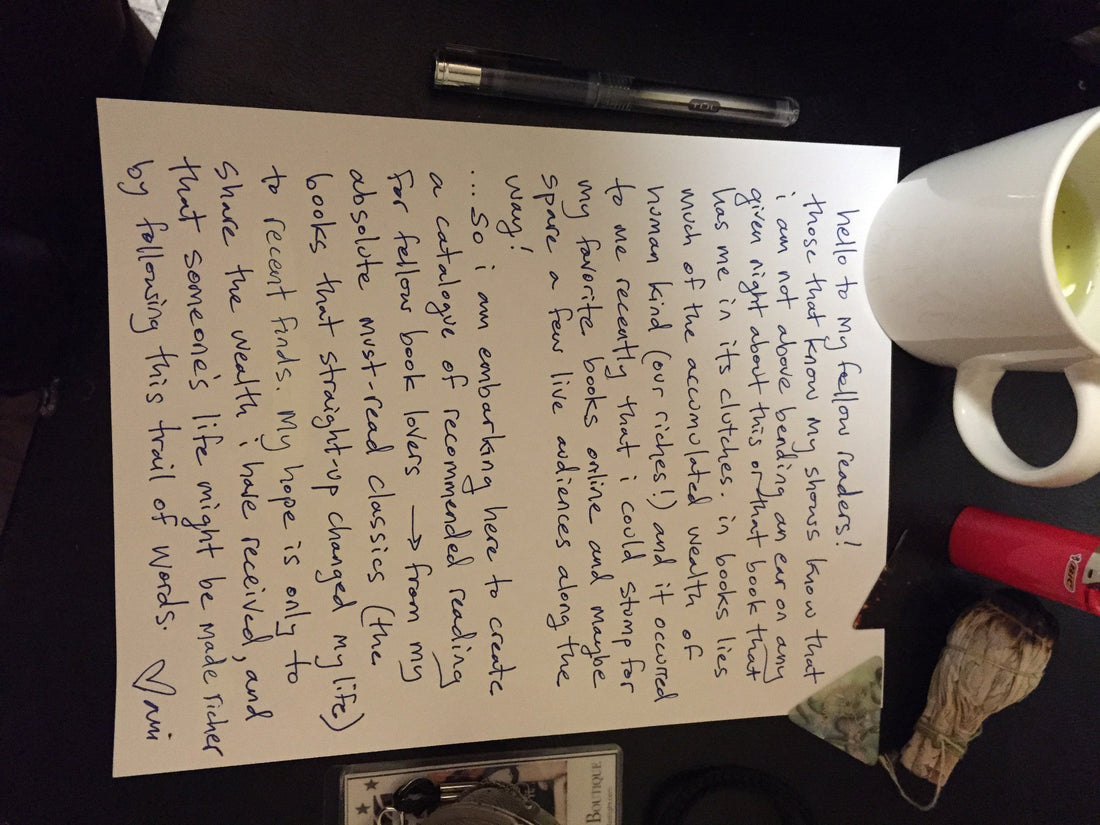 hello to my fellow readers!
those that know my shows know that
i am not above bending an ear on any
given night about this or that book that
has me in its clutches. in books lies
much of the accumulated wealth of
human kind (our riches!) and it occurred
to me recently that i could stump for
my favorite books online and maybe
spare a few live audiences along the
way!
...so i am embarking here to create
a catalogue of recommended reading
for fellow book lovers → from my
absolute must-read classics (the
books that straight-up changed my life)
to recent finds. my hope is only to
share the wealth i have received, and
that someone's life might be made richer
by following this trail of words. ♡ani
TUL
BIC
BOUTIQUE